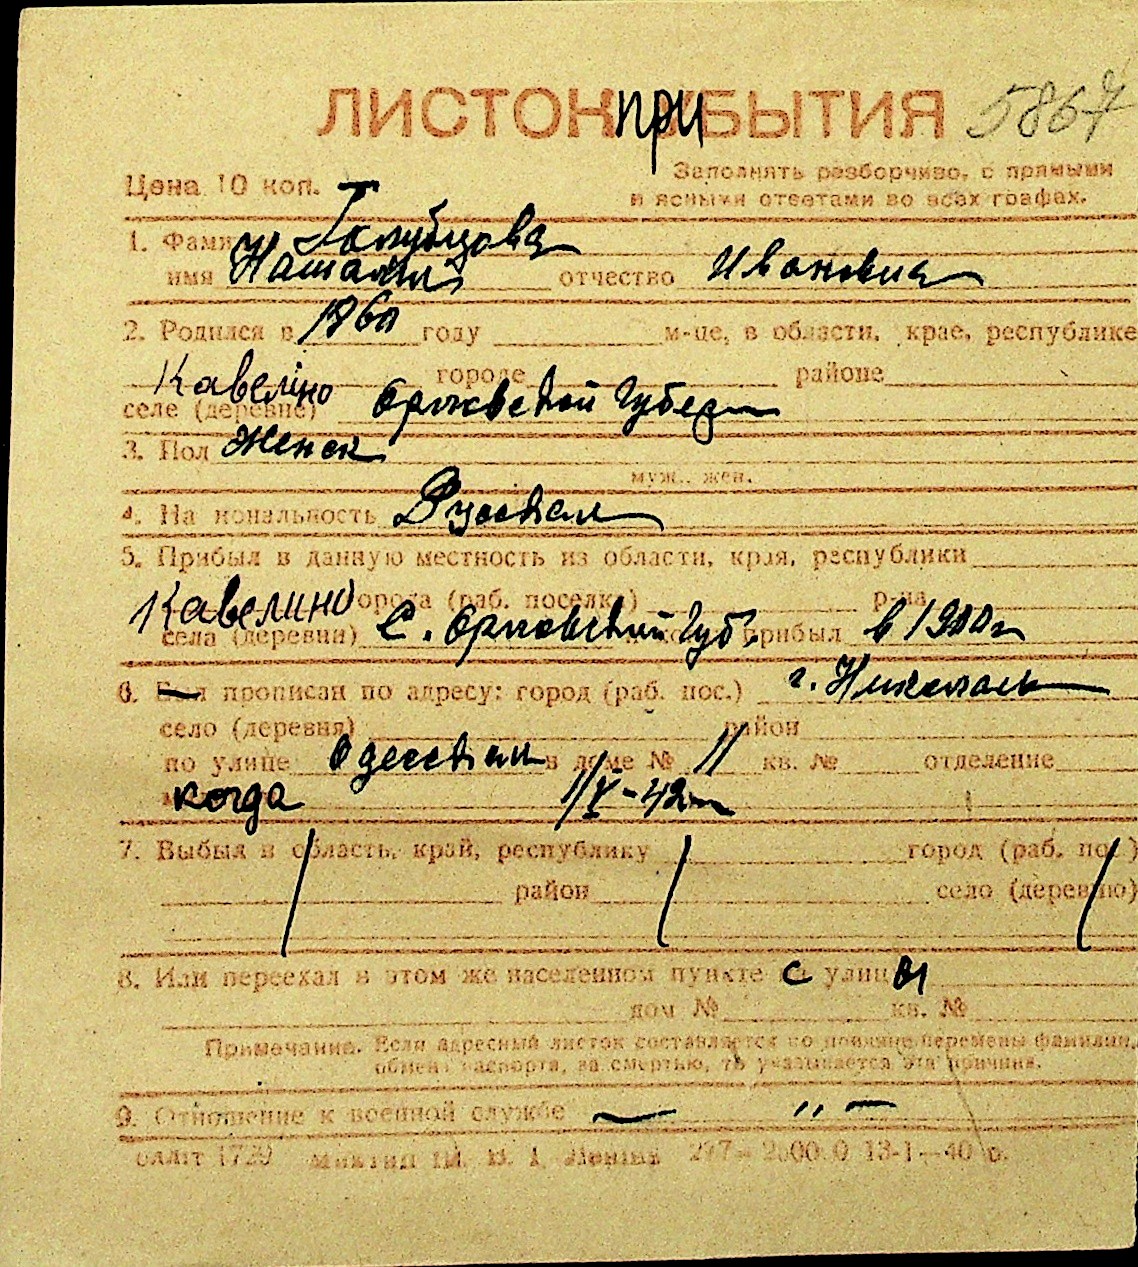 ЛИСТОК ПРИБЫТИЯ 5867
Цена 10 коп. Заполнять разборчиво, с прямыми
и ясными ответами во всех графах.
1. Фами Голубцова
имя Наталия отчество Ивановна
2. Родился в 1860 году м-це, в области, крае, республике
Кавелино городе районе
селе (деревне) Орловской Губер
3. Пол Женск
муж., жен.
4. На иональность Русская
5. Прибыл в данную местность из области, края, республики
Кавелино орода (раб. поселка) р-на
села (деревни) С. Орловской Губ. прибыл в 1900 г
6. прописан по адресу: город (раб. пос.) г. Николаев
село (деревня) район
по улице Одесская в доме № 11 кв. № отделение
когда 11/V-42
7. Выбыл в область, край, республику город (раб. пос.)
район село (деревню)
8. Или переехал в этом же населенном пункте с улицы
дом № кв. №
Примечание. Если адресный листок составляется по причине перемены фамилии,
обмена паспорта, за смертью, то указывается эта причина.
9. Отношение к военной службе — „ —
1729 им. Ленина 277— 13-1—40